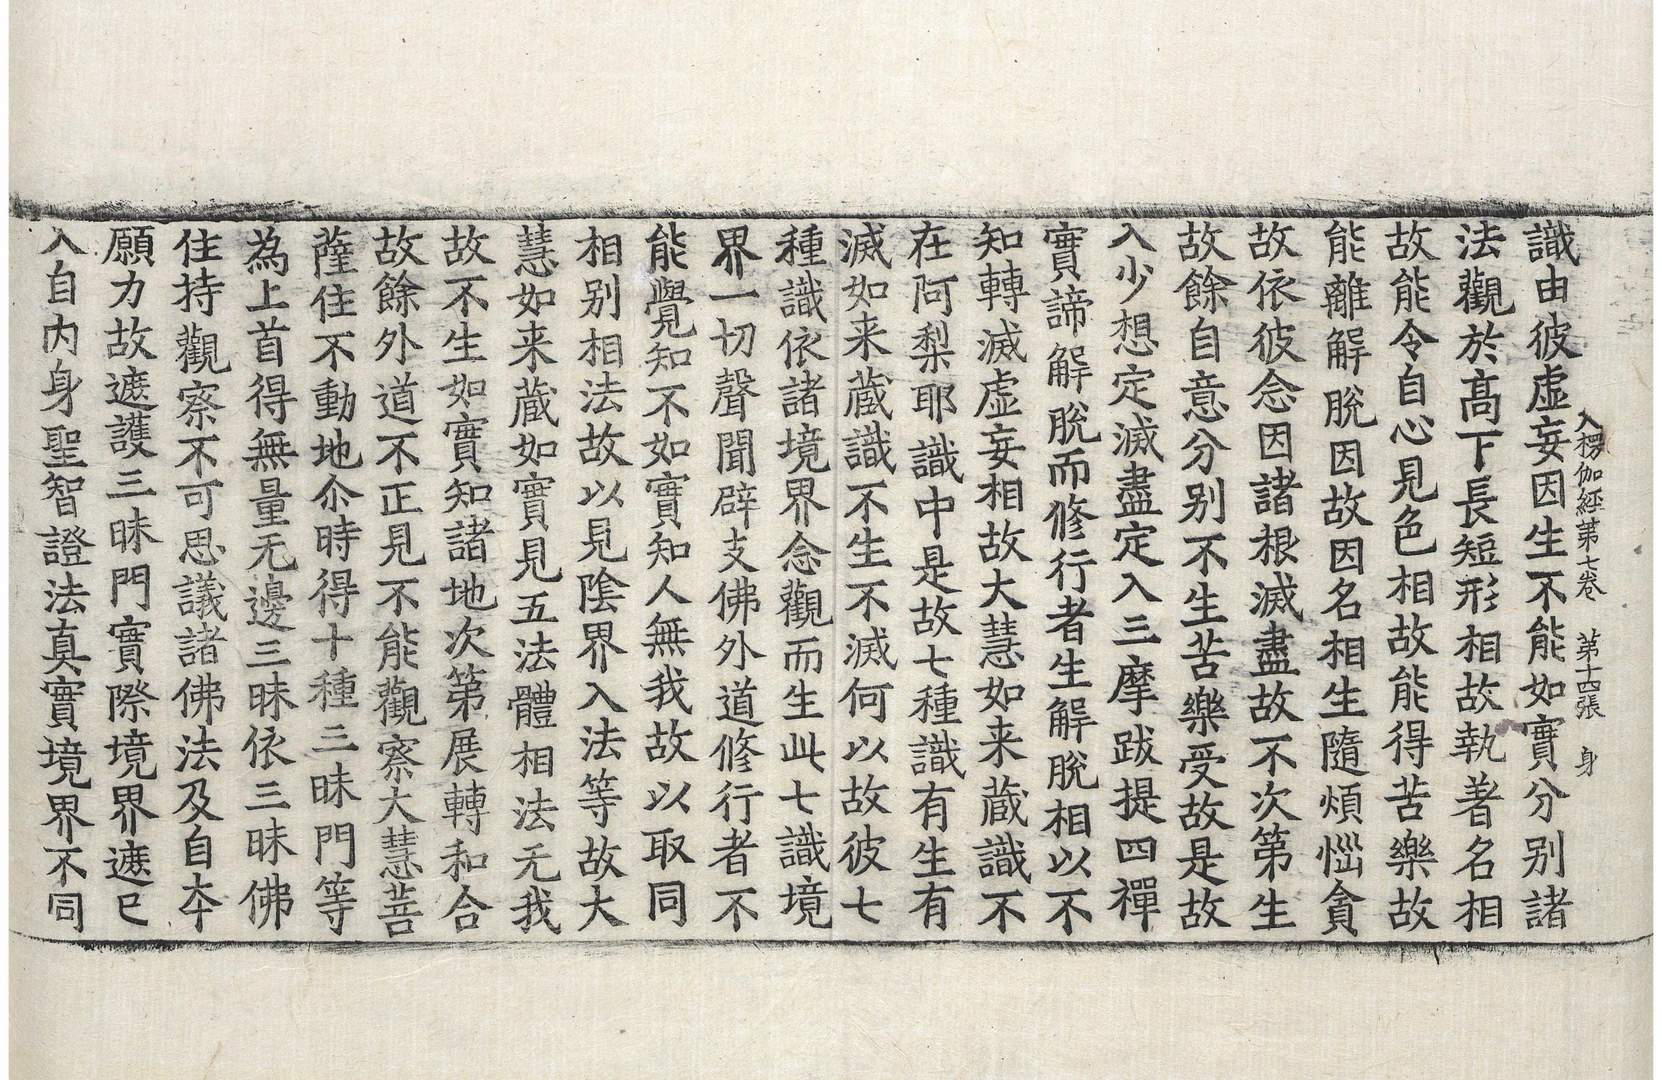 入楞伽經第七卷　第十四張　身
識由彼虛妄因生不能如實分別諸
法觀於髙下長短形相故執著名相
故能令自心見色相故能得苦樂故
能離解脫因故因名相生隨煩惱貪
故依彼念因諸根滅盡故不次第生
故餘自意分別不生苦樂受故是故
入少想定滅盡定入三摩跋提四禪
實諦解脫而修行者生解脫相以不
知轉滅虛妄相故大慧如来藏識不
在阿梨耶識中是故七種識有生有
滅如来藏識不生不滅何以故彼七
種識依諸境界念觀而生此七識境
界一切聲聞辟支佛外道修行者不
能覺知不如實知人無我故以取同
相別相法故以見陰界入法等故大
慧如来藏如實見五法體相法无我
故不生如實知諸地次第展轉和合
故餘外道不正見不能觀察大慧菩
薩住不動地尒時得十種三昧門等
為上首得無量无邊三昧依三昧佛
住持觀察不可思議諸佛法及自夲
願力故遮護三昧門實際境界遮已
入自内身聖智證法真實境界不同